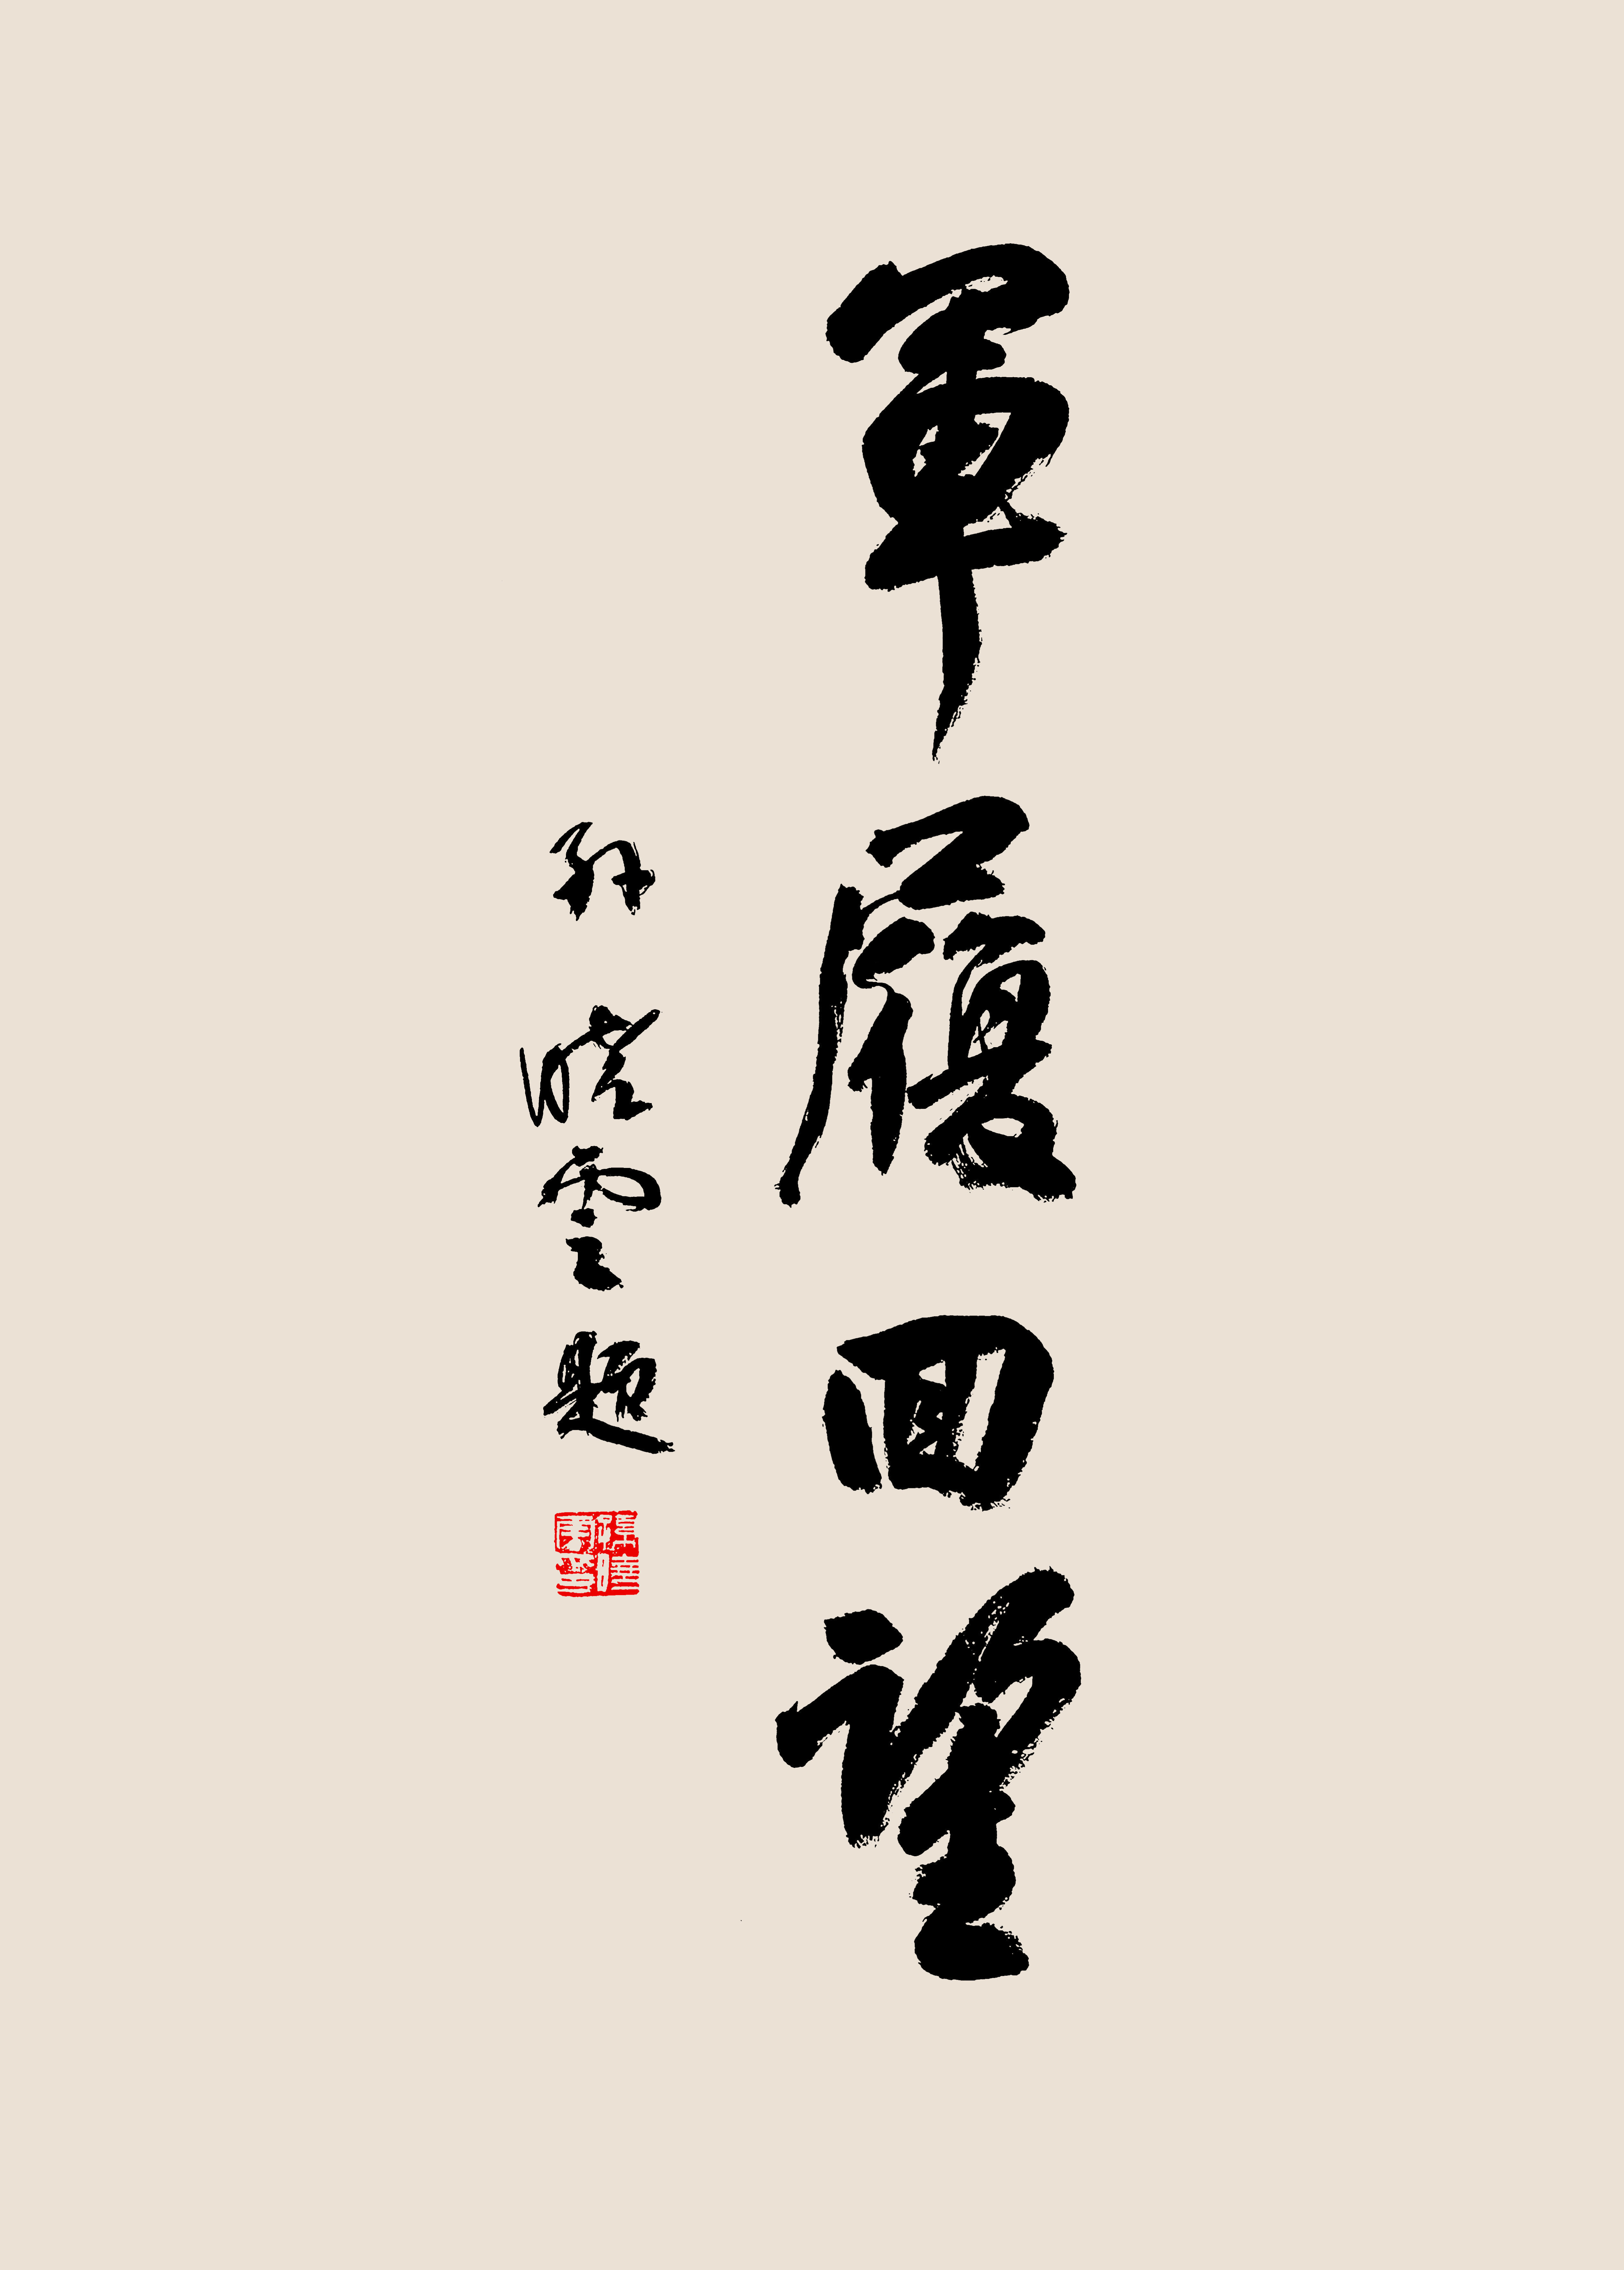 軍履回望
孙晓云题